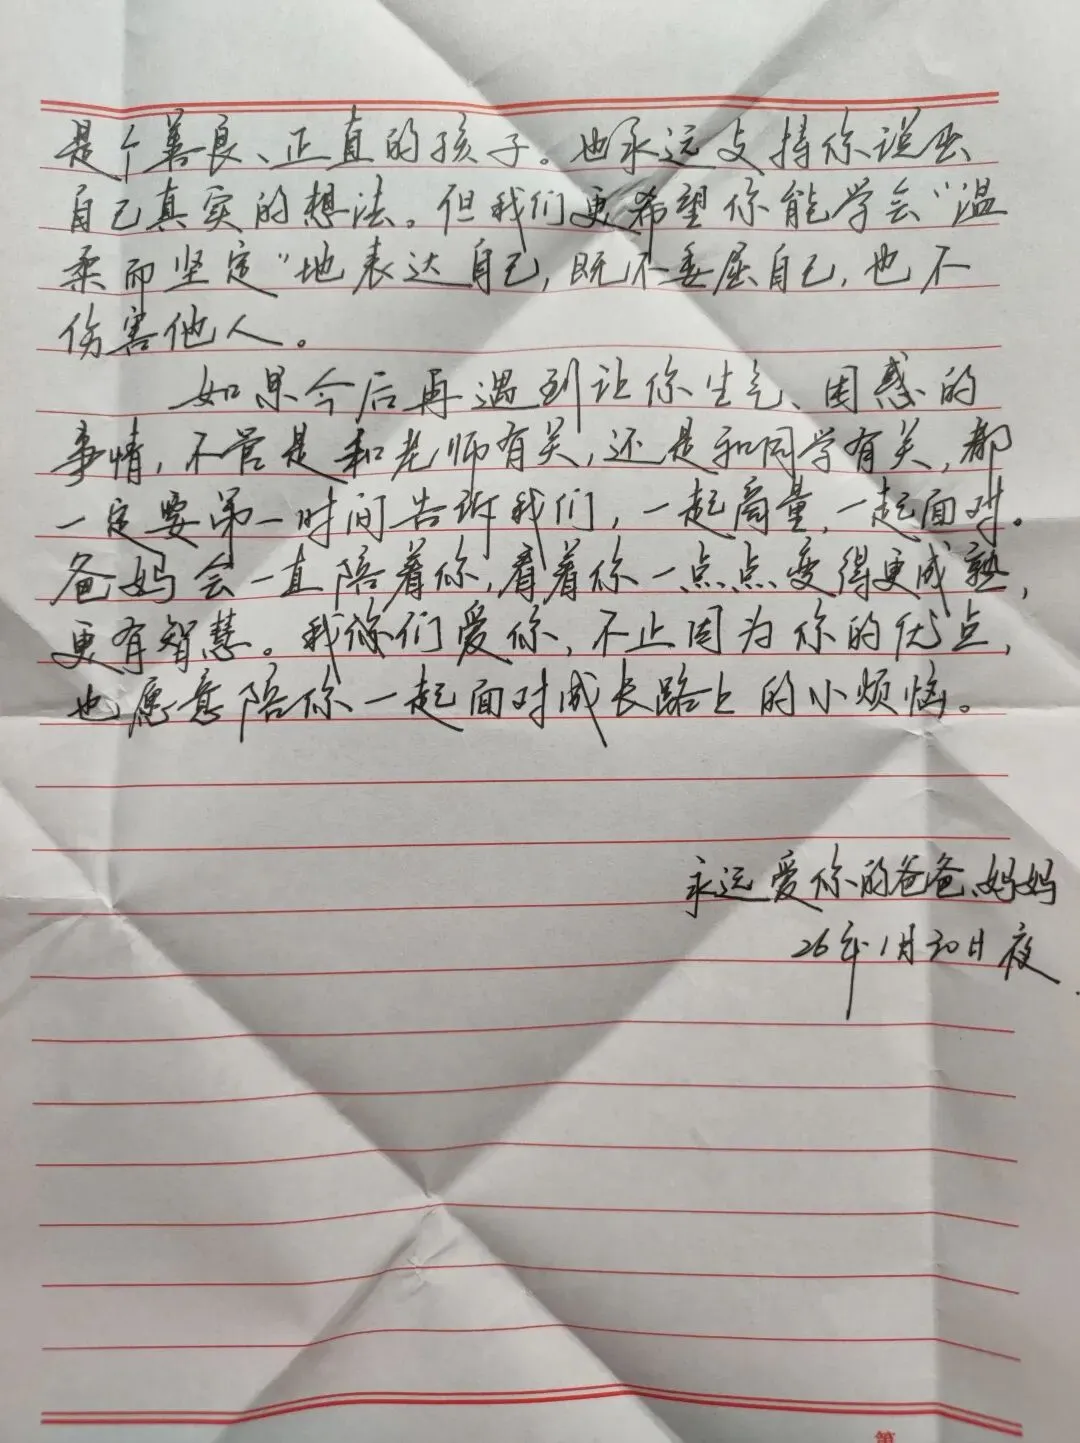 是个善良、正直的孩子。也永远支持你说出
自己真实的想法。但我们更希望你能学会“温
柔而坚定”地表达自己,既不委屈自己,也不
伤害他人。
如果今后再遇到让你生气、困惑的
事情,不管是和老师有关,还是和同学有关,都
一定要第一时间告诉我们,一起商量,一起面对。
爸妈会一直陪着你,看着你一点点变得更成熟,
更有智慧。我们爱你,不止因为你的优点,
也愿意陪你一起面对成长路上的小烦恼。
永远爱你的爸爸、妈妈
26年1月30日夜
第